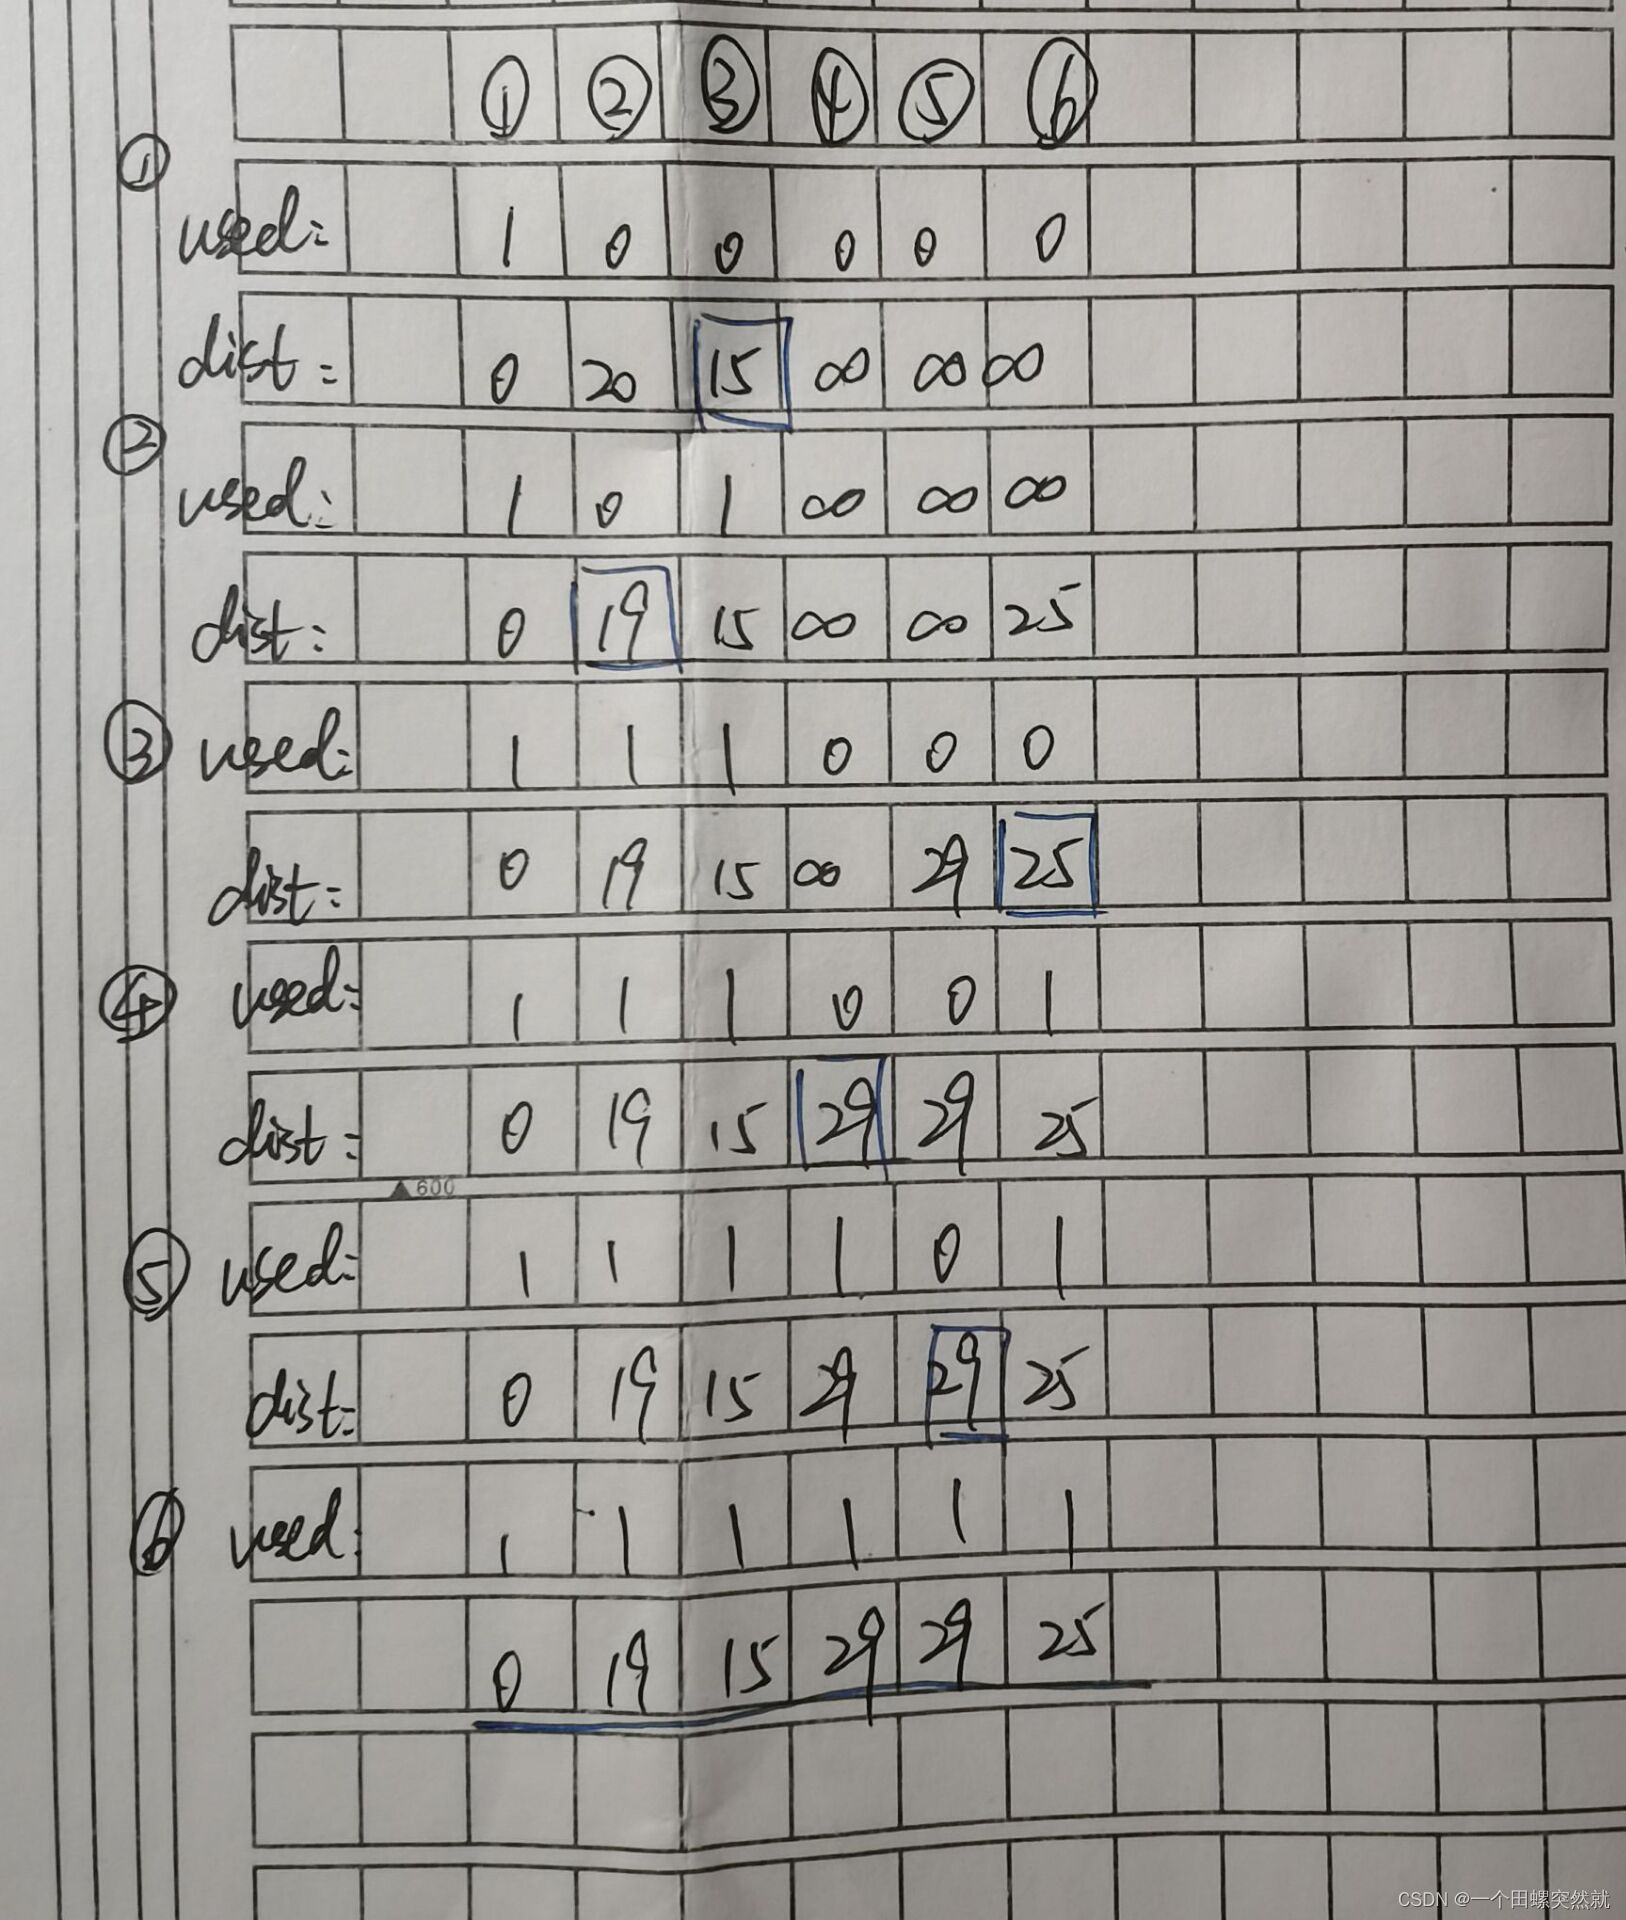 ① ② ③ ④ ⑤ ⑥
①
used: 1 0 0 0 0 0
dist: 0 20 15 ∞ ∞ ∞
②
used: 1 0 1 ∞ ∞ ∞
dist: 0 19 15 ∞ ∞ 25
③ used: 1 1 1 0 0 0
dist: 0 19 15 ∞ 29 25
④ used: 1 1 1 0 0 1
dist: 0 19 15 29 29 25
▲600
⑤ used: 1 1 1 1 0 1
dist: 0 19 15 29 29 25
⑥ used: 1 1 1 1 1 1
0 19 15 29 29 25
CSDN @一个田螺突然就